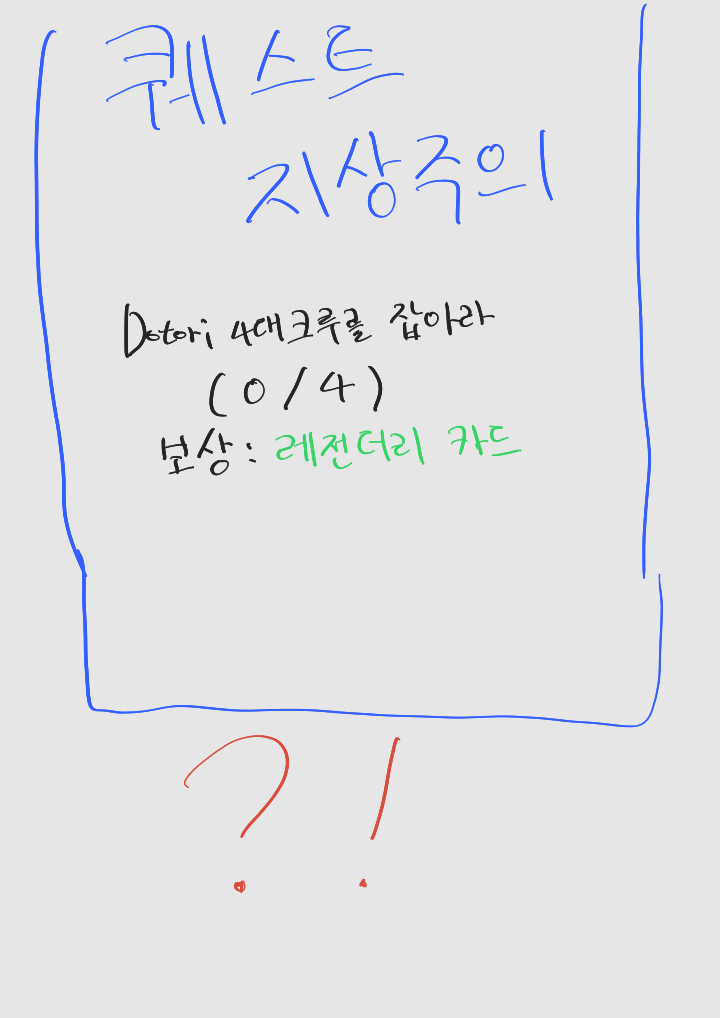 퀘스트
지상주의
Dotori 4대크루를 잡아라
(0/4)
보상: 레전더리 카드
?!